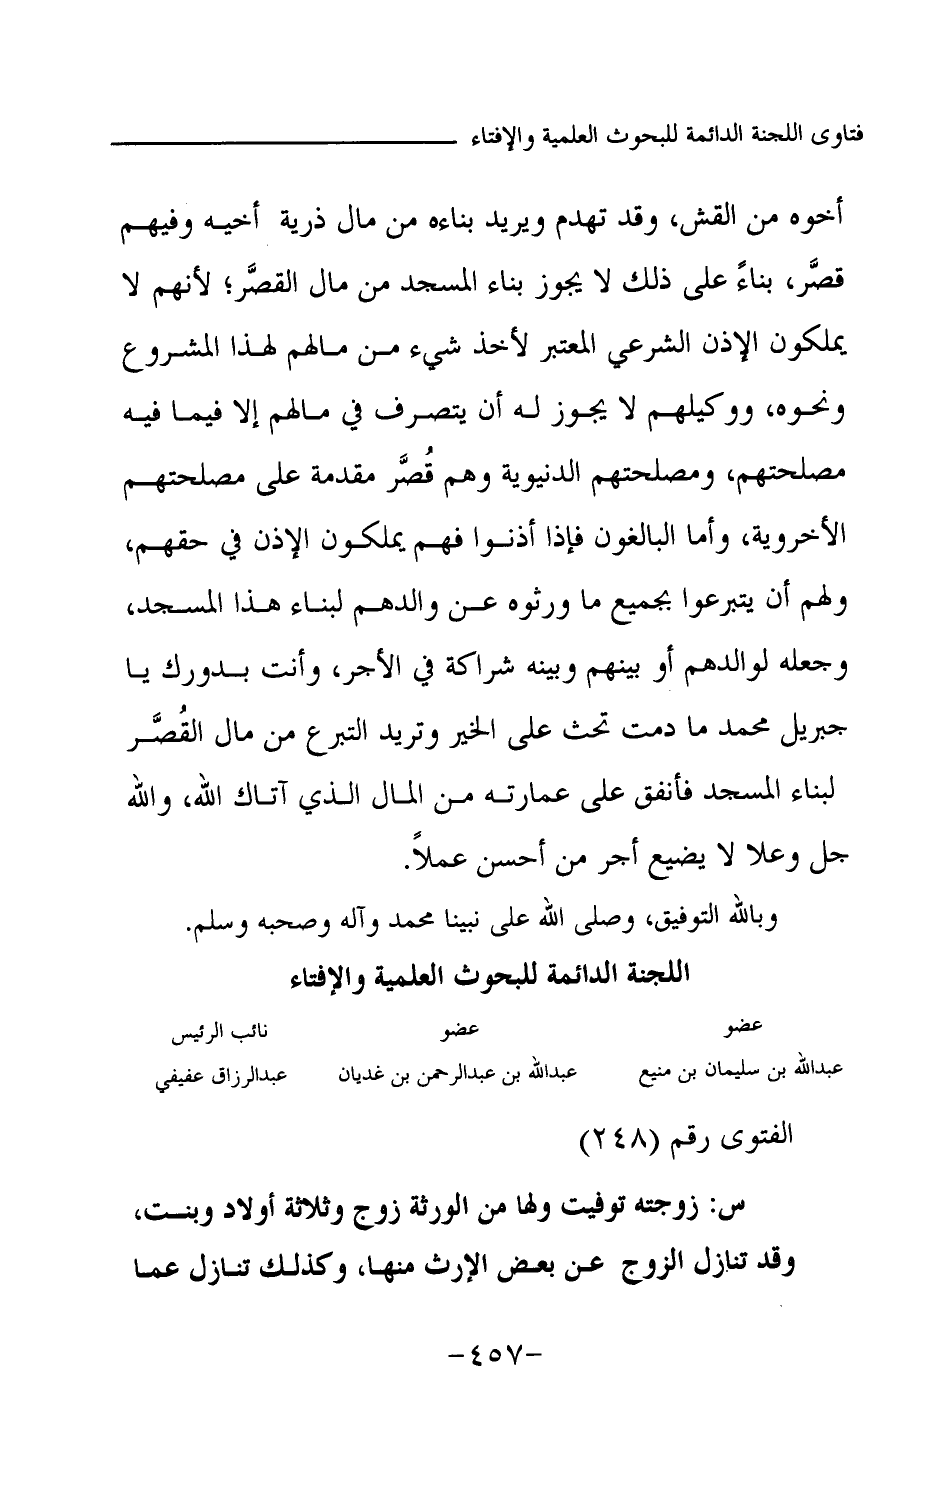 فتاوى اللجنة الدائمة للبحوث العلمية والإفتاء
أخوه من القش، وقد تهدم ويريد بناءه من مال ذرية أخيه وفيهم
قصَّر، بناءً على ذلك لا يجوز بناء المسجد من مال القصَّر؛ لأنهم لا
يملكون الإذن الشرعي المعتبر لأخذ شيء من مالهم لهذا المشروع
ونحوه، ووكيلهم لا يجوز له أن يتصرف في مالهم إلا فيما فيه
مصلحتهم، ومصلحتهم الدنيوية وهم قُصَّر مقدمة على مصلحتهم
الأخروية، وأما البالغون فإذا أذنوا فهم يملكون الإذن في حقهم،
ولهم أن يتبرعوا بجميع ما ورثوه عن والدهم لبناء هذا المسجد،
وجعله لوالدهم أو بينهم وبينه شراكة في الأجر، وأنت بدورك يا
جبريل محمد ما دمت تحث على الخير وتريد التبرع من مال القُصَّر
لبناء المسجد فأنفق على عمارته من المال الذي آتاك الله، والله
جل وعلا لا يضيع أجر من أحسن عملاً.
وبالله التوفيق، وصلى الله على نبينا محمد وآله وصحبه وسلم.
اللجنة الدائمة للبحوث العلمية والإفتاء
عضو عضو نائب الرئيس
عبدالله بن سليمان بن منيع عبدالله بن عبدالرحمن بن غديان عبدالرزاق عفيفي
الفتوى رقم (٢٤٨)
س: زوجته توفيت ولها من الورثة زوج وثلاثة أولاد وبنت،
وقد تنازل الزوج عن بعض الإرث منها، وكذلك تنازل عما
-٤٥٧-